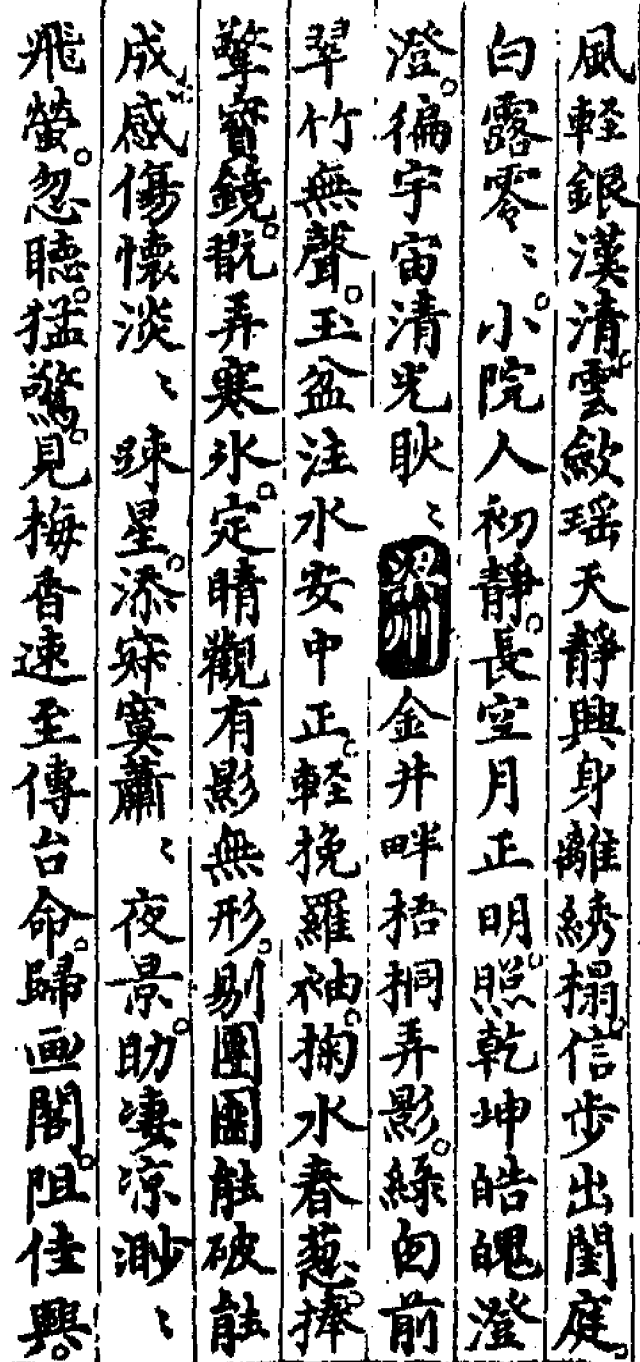 風軽銀漢清。雲歛瑶天靜興身離綉搨。信步出閨庭。
白露零〻。小院人初靜。長空月正明。照乾坤皓魄澄
澄。徧宇宙清光耿〻梁州金井畔梧桐弄影。緑囱前
翠竹無聲。玉盆注水安中正。軽挽羅袖。掬水春葱。捧
擎寳鏡。翫弄寒氷。定睛觀有影無形。剔團圞能破能
成。感傷懷淡〻踈星。添寂寞蕭〻夜景。助凄凉渺〻
飛螢。忽聴。猛驚。見梅香速至傳台命。歸画閣。阻佳興。